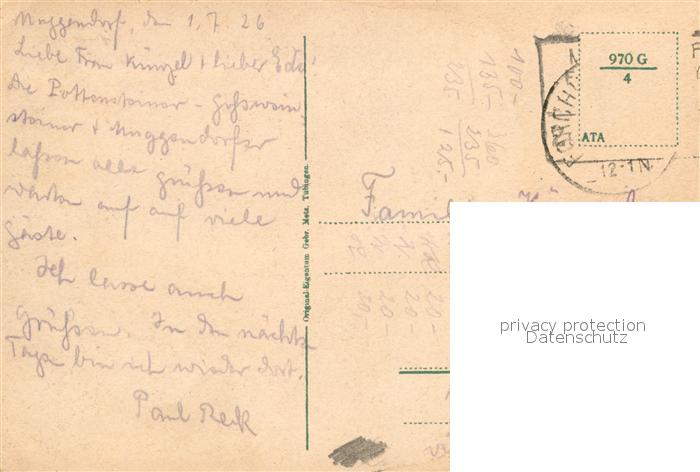 Muggendorf, den 1.7.26
Liebe Frau Künzel & lieber Edi!
Die Pottensteiner - Gößwein
steiner & Muggendorfer
lassen alle grüßen und
warten auf auf viele
Gäste.
Ich lasse auch
grüßen. In den nächsten
Tagen bin ich wieder dort.
Paul Reck
Original-Eigentum Gebr. Metz, Tübingen
100.-
135.-
235.-
360
235
125.-
Famil
20-
20-
20-
970 G
4
ATA
12-1 N.
privacy protection
Datenschutz